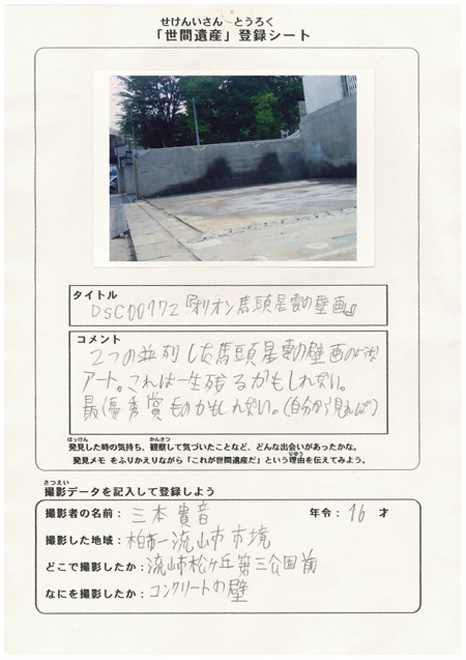 せけんいさん とうろく
「世間遺産」登録シート
タイトル
DSC00772『オリオン馬頭星雲の壁画』
コメント
2つの並列した馬頭星雲の壁画のような
アート。これは一生残るかもしれない。
最優秀賞ものかもしれない。(自分から見れば)
はっけん かんさつ
発見した時の気持ち、観察して気づいたことなど、どんな出会いがあったかな。
りゆう
発見メモ をふりかえりながら「これが世間遺産だ」という理由を伝えてみよう。
さつえい
撮影データを記入して登録しよう
撮影者の名前：三本貴音 年令：16 才
撮影した地域：柏市ー流山市 市境
どこで撮影したか：流山市松ケ丘第三公園前
なにを撮影したか：コンクリートの壁